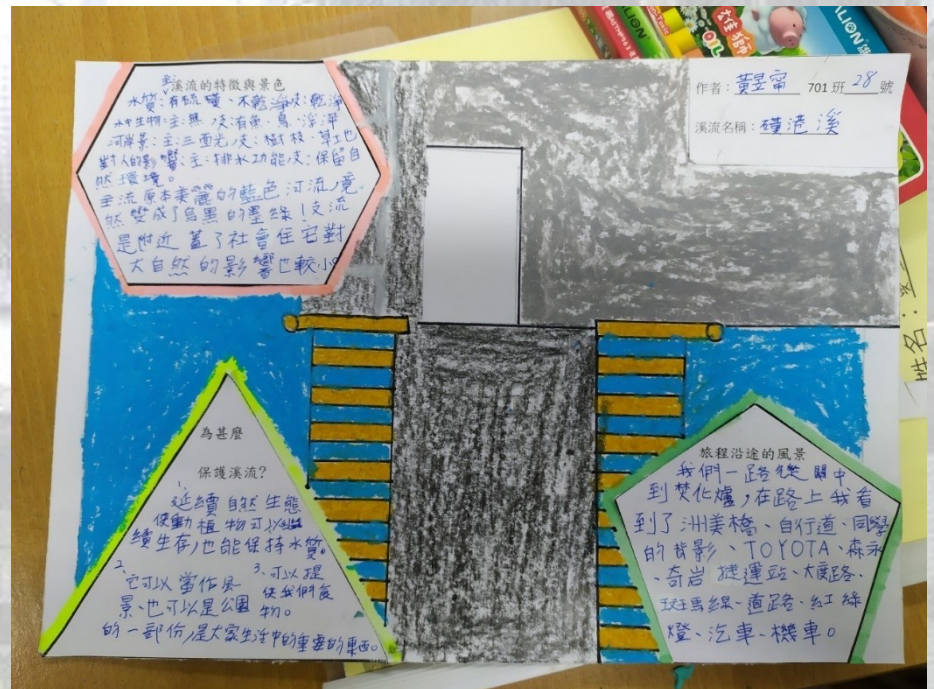 溪流的特徵與景色
水質:主:有硫磺、不乾淨支:乾淨
水中生物:主:無 支:有魚、鳥、浮萍
河岸景:主:三面光支:樹枝、草土也
對人的影響:主:排水功能支:保留自
然環境。
主流原本美麗的藍色河流,竟
然變成了烏黑的墨綠!支流
是附近蓋了社會住宅對
大自然的影響也較小。
作者:黃昱甯 701班 28 號
溪流名稱:磺港溪
為甚麼
保護溪流?
延續自然生態
使動植物可以繼
續生存,也能保持水質。
2、它可以當作風
景、也可以是公園
的一部份,是大家生活中的重要的東西。
3、可以提
供我們食
物。
旅程沿途的風景
我們一路從關中
到焚化爐,在路上我看
到了洲美橋、自行道、同學
的背影、TOYOTA、森永
、奇岩捷運站、大度路、
斑馬線、道路、紅綠
燈、汽車、機車。
姓名:
雄獅
LION